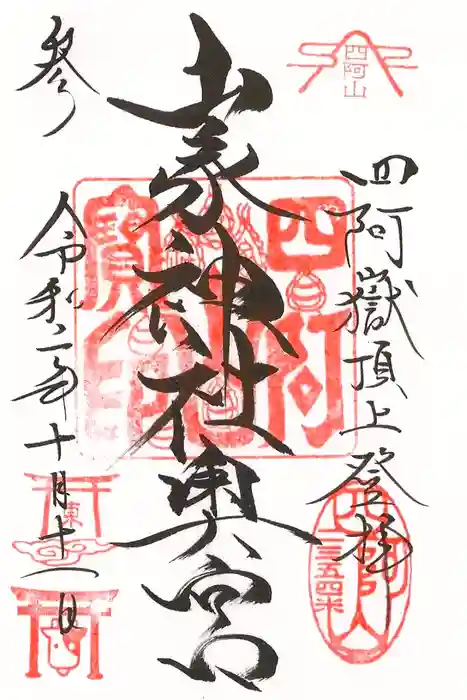 四阿山
四阿嶽頂上登拝
山家神社奥宮
参
令和二年十月十一日
四阿
寳印
東
四阿山
二三五四米